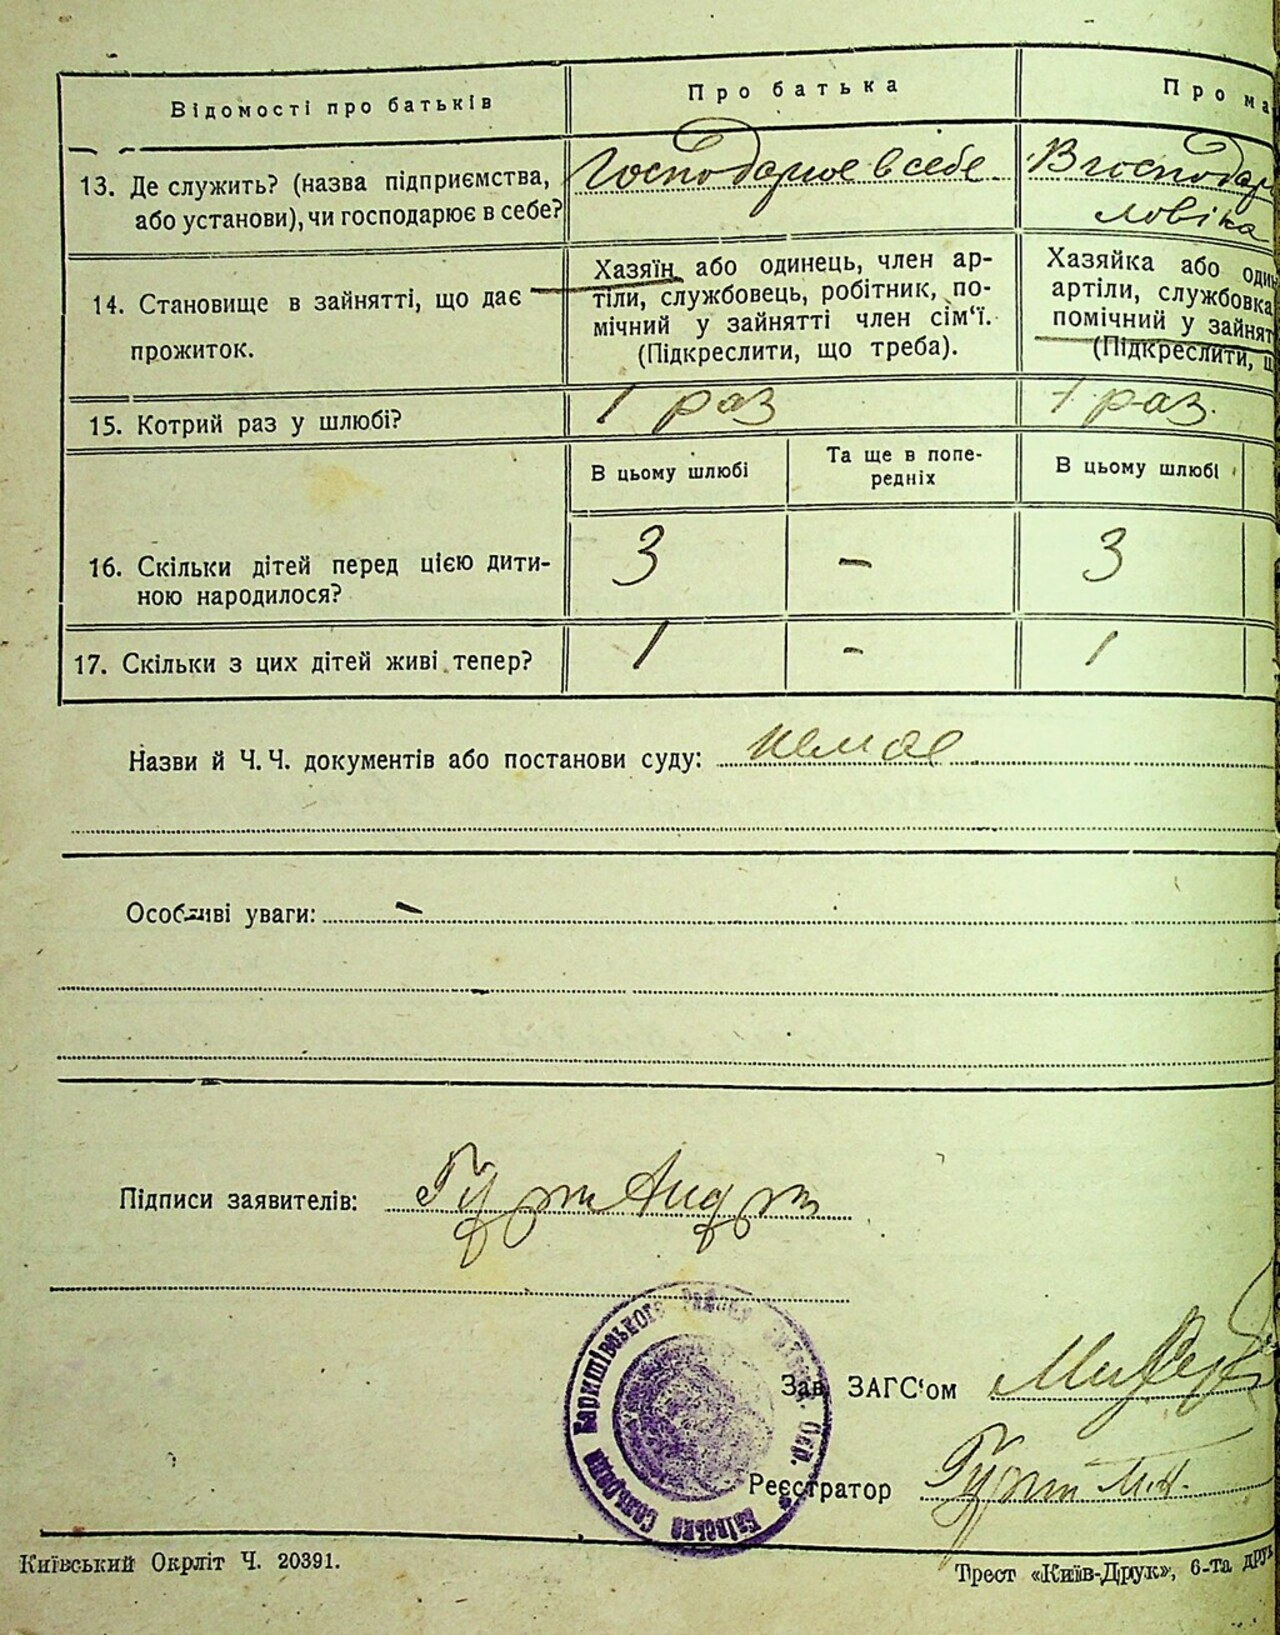 Відомості про батьків
Про батька
Про ма
13. Де служить? (назва підприємства,
або установи), чи господарює в себе?
Господарює в себе
В господар
ловіка
14. Становище в зайнятті, що дає
прожиток.
Хазяїн або одинець, член ар-
тіли, службовець, робітник, по-
мічний у зайнятті член сім'ї.
(Підкреслити, що треба).
Хазяйка або один
артіли, службовка
помічний у зайнят
(Підкреслити, щ
15. Котрий раз у шлюбі?
1 раз
1 раз.
В цьому шлюбі
Та ще в попе-
редніх
В цьому шлюбі
16. Скільки дітей перед цією дити-
ною народилося?
3
-
3
17. Скільки з цих дітей живі тепер?
1
-
1
Назви й Ч. Ч. документів або постанови суду: немає
Особливі уваги: -
Підписи заявителів: Гурт Андр
Баришівського
Сельрада
Окр.
Зав. ЗАГС'ом
Реєстратор Гурт М.
Київський Окрліт Ч. 20391.
Трест «Київ-Друк», 6-та друк